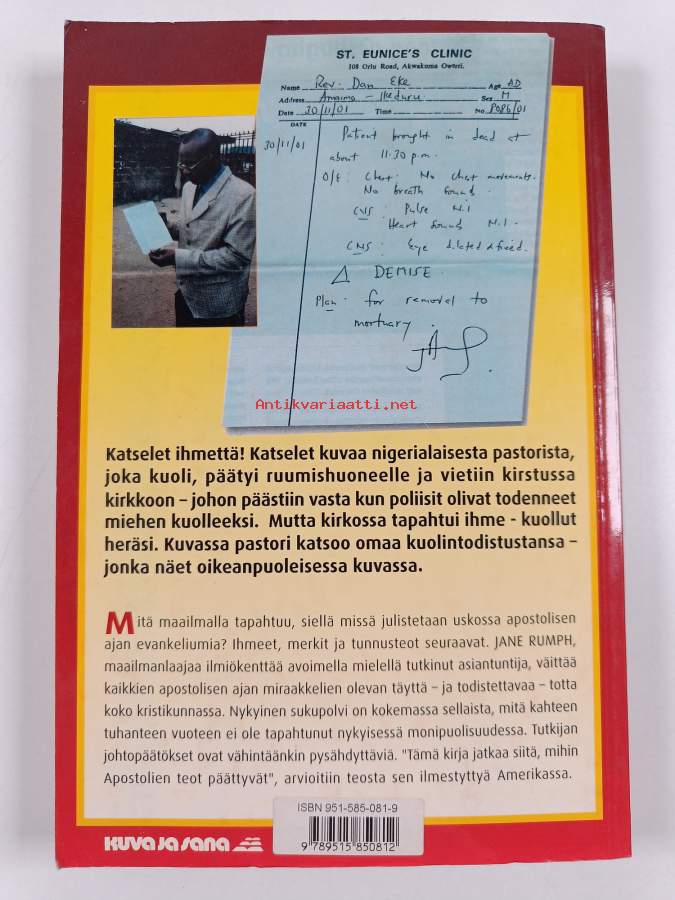 ST. EUNICE'S CLINIC
108 Orlu Road, Akwakuma Owerri.
Name Rev. Dan Eke Age AD
Address Amaimo - Ikeduru Sex M
Date 30/11/01 Time No 8086/01
DATE
30/11/01 Patient brought in dead at
about 11.30 p.m.
O/E: Chest: No chest movements.
No breath sounds.
CVS: Pulse Nil
Heart sounds Nil.
CNS: Eye dilated & fixed.
Δ DEMISE.
Plan. for removal to
mortuary.
Antikvariaatti.net
Katselet ihmettä! Katselet kuvaa nigerialaisesta pastorista,
joka kuoli, päätyi ruumishuoneelle ja vietiin kirstussa
kirkkoon – johon päästiin vasta kun poliisit olivat todenneet
miehen kuolleeksi. Mutta kirkossa tapahtui ihme - kuollut
heräsi. Kuvassa pastori katsoo omaa kuolintodistustansa –
jonka näet oikeanpuoleisessa kuvassa.
Mitä maailmalla tapahtuu, siellä missä julistetaan uskossa apostolisen
ajan evankeliumia? Ihmeet, merkit ja tunnusteot seuraavat. JANE RUMPH,
maailmanlaajaa ilmiökenttää avoimella mielellä tutkinut asiantuntija, väittää
kaikkien apostolisen ajan miraakkelien olevan täyttä – ja todistettavaa – totta
koko kristikunnassa. Nykyinen sukupolvi on kokemassa sellaista, mitä kahteen
tuhanteen vuoteen ei ole tapahtunut nykyisessä monipuolisuudessa. Tutkijan
johtopäätökset ovat vähintäänkin pysähdyttäviä. "Tämä kirja jatkaa siitä, mihin
Apostolien teot päättyvät", arvioitiin teosta sen ilmestyttyä Amerikassa.
ISBN 951-585-081-9
9 789515 850812
kuva ja sana